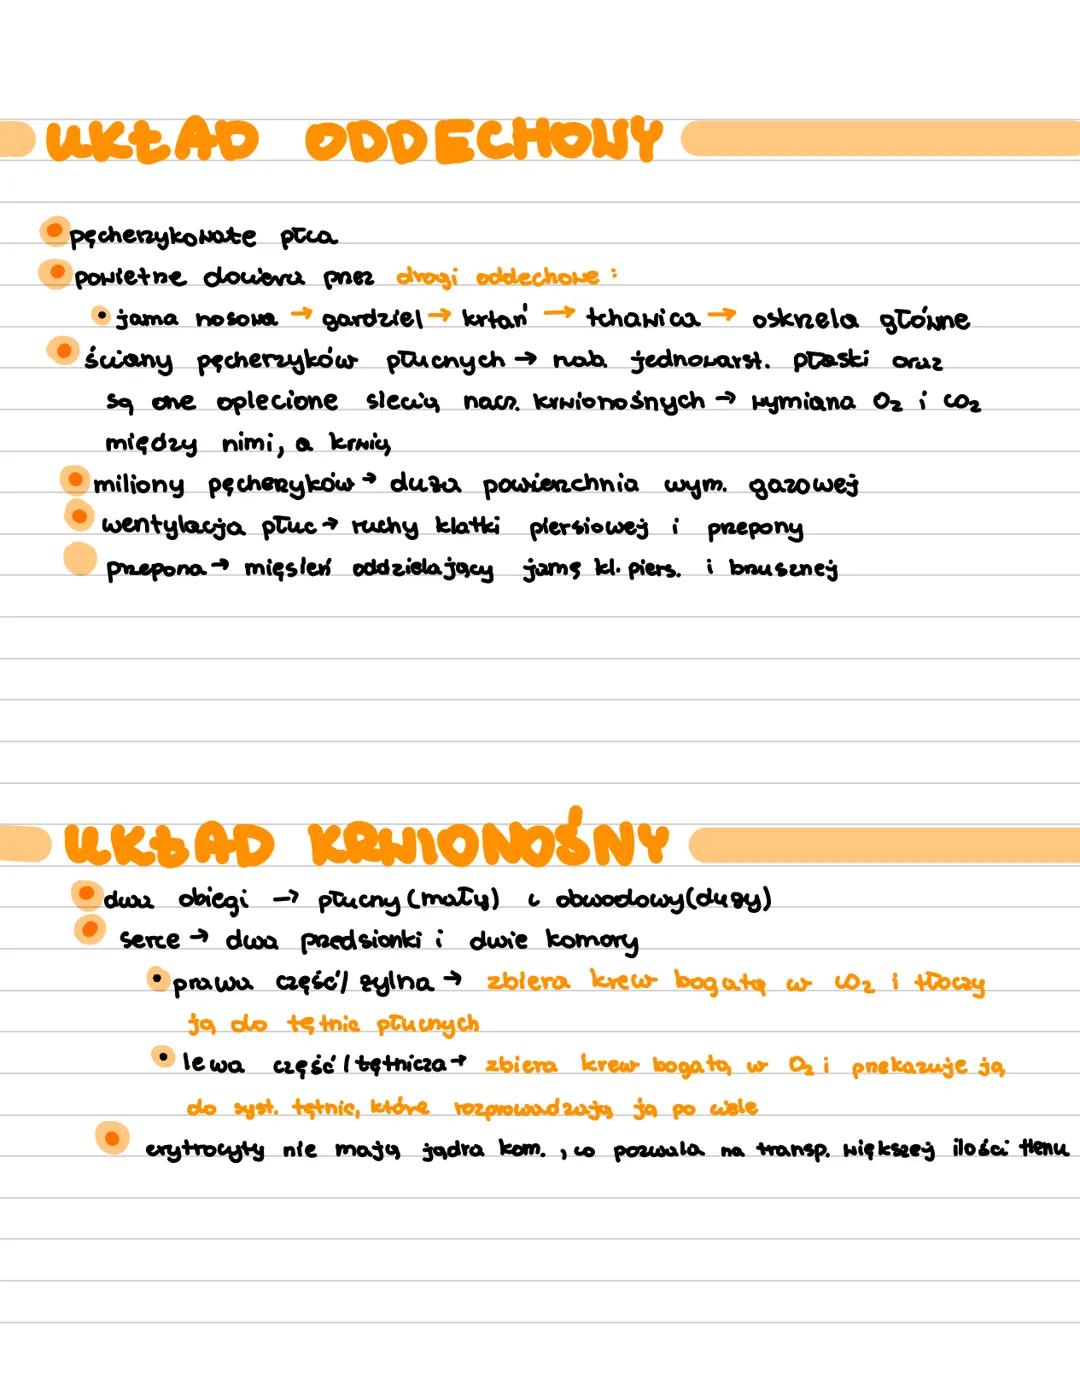 UKŁAD ODDECHOWY
pęcherzykowate płca
powietrze dociera przez drogi oddechowe :
jama nosowa → gardziel → krtań → tchawica → oskrzela główne
ściany pęcherzyków płucnych → nab. jednowarst. płaski oraz
są one oplecione siecią nacz. krwionośnych → wymiana O₂ i CO₂
między nimi, a krwią
miliony pęcherzyków → duża powierzchnia wym. gazowej
wentylacja płuc → ruchy klatki piersiowej i przepony
przepona → mięsień oddzielający jamę kl. piers. i brzusznej
UKŁAD KRWIONOŚNY
dwa obiegi → płucny (mały) i obwodowy (duży)
serce → dwa przedsionki i dwie komory
prawa część / żylna → zbiera krew bogatą w CO₂ i tłoczy
ją do tętnic płucnych
lewa część / tętnicza → zbiera krew bogatą w O₂ i przekazuje ją
do syst. tętnic, które rozprowadzają ją po ciele
erytrocyty nie mają jądra kom., co pozwala na transp. większej ilości tlenu